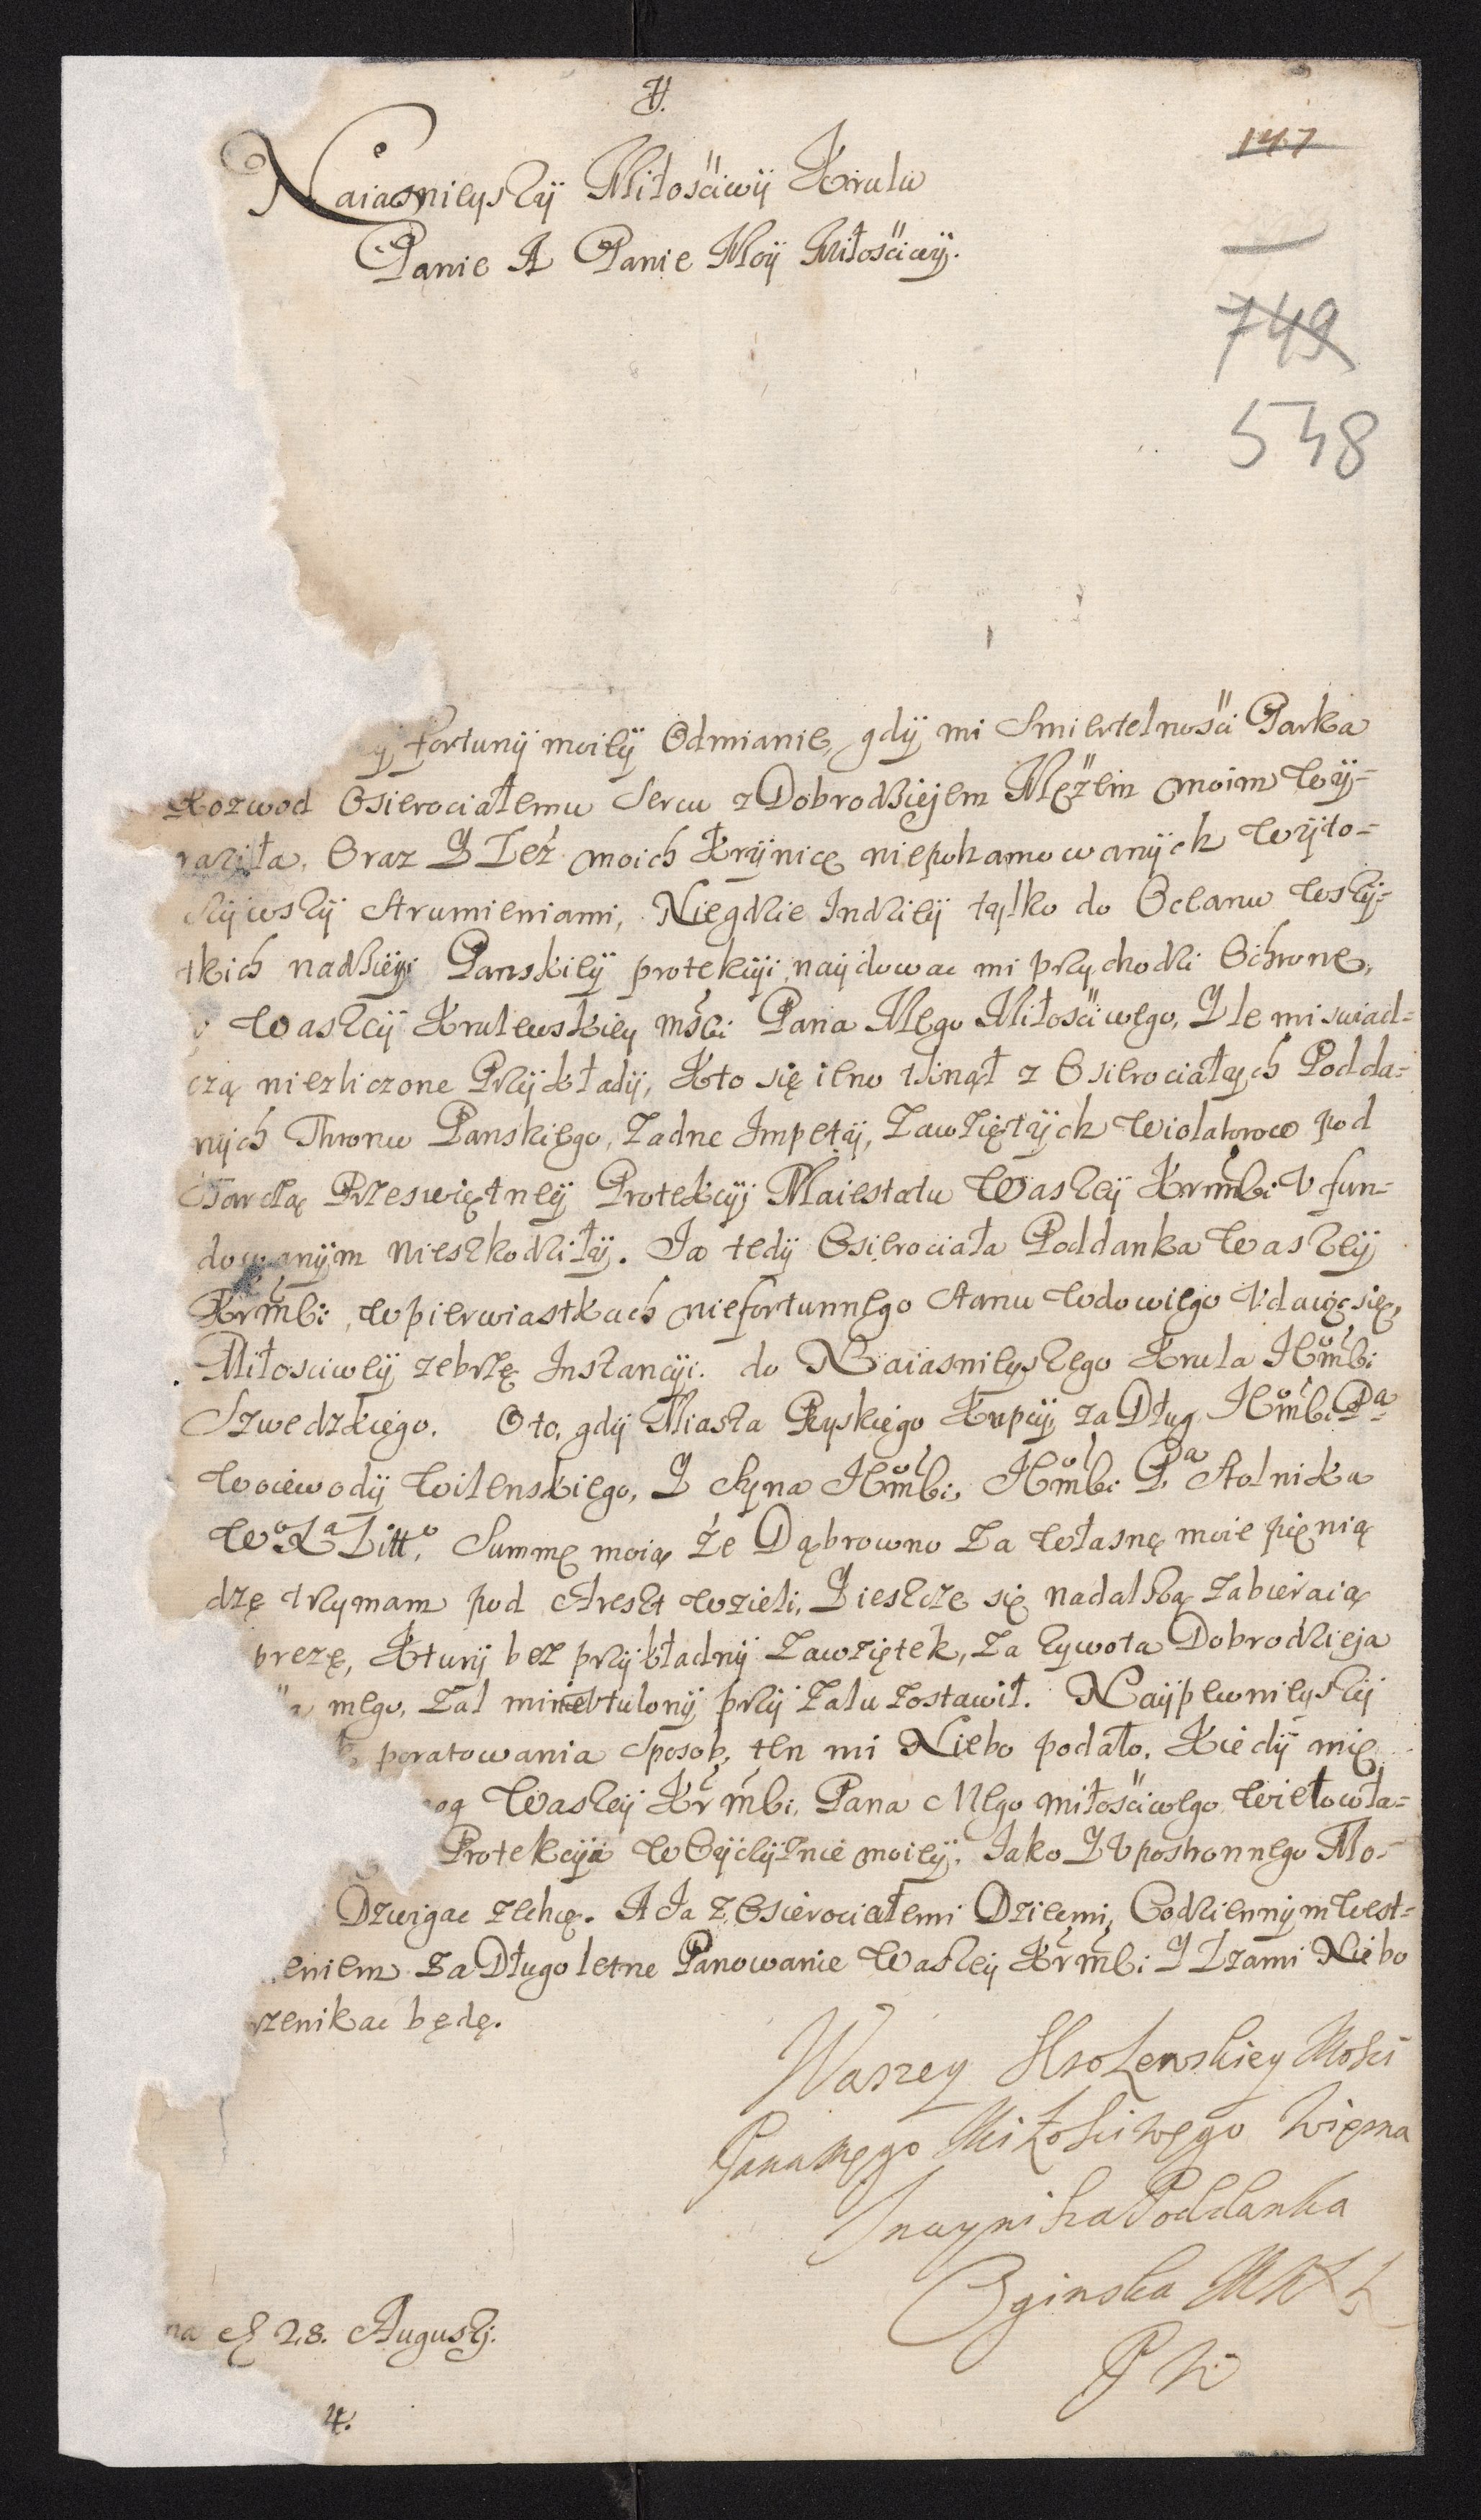 147
Naiasnieyszÿ Miłościwÿ Krulu
Panie A Panie Moÿ Miłościwÿ.
749
548
fortunÿ moieÿ Odmianie, gdÿ mi Smiertelności Parka
Rozwod Osierociałemu Sercu z Dobrodziejem Mężem moim wÿ-
raziła, Oraz Y Łez moich Krÿnicę niepohamowanÿch wÿto-
czÿwszÿ strumieniami, Niegdzie Indzieÿ tÿlko do Oceanu wszÿ-
tkich nadzieÿi Panskieÿ protekcÿi naÿdowac mi przÿchodzi Ochronę,
Waszeÿ Krulewskiey mści Pana Mego Miłościwego, Y te mi swiad-
czą niezliczone Przÿkładÿ, Kto się ieno tkinął z Osierociałÿch Podda-
nÿch Thronu Panskiego, Zadne Impetÿ, Zawziętÿch Wiolatorow pod
Tarczą Przeswiętneÿ Protekcÿj Maiestatu Waszeÿ Krmści Vfun-
dowanÿm nieszkodziłÿ. Ja tedÿ Osierociała Poddanka Waszeÿ
Krmści, w pierwiastkach niefortunnego stanu wdowiego Vdaięsię,
Miłosciweÿ zebrzę Instancÿi. do Naiasnieyszego Krula JKmści
Szwedzkiego. Oto, gdÿ Miasta Ryskiego Kupcÿ za Dług JKmści Pa
Wociewodÿ Wilenskiego, Y Syna JKmści, JKmści Pa Stolnika
Wo Xa Litto, Summę moię że Dąbrowno za własnę moie pienią
dzę trzymam pod Areszt wzieli, Y ieszcze się nadalszą zabieraią
prezę, Kturÿ bez przÿkładnÿ zawziętek, za zywota Dobrodzieja
mego, żal mi nievtulonÿ przÿ żalu zostawił. Naÿpewnieyszÿ
poratowania sposob, ten mi Niebo podało, Kiedÿ mię
Waszeÿ Kr mści, Pana Mego miłościwego Wielowła-
Protekcÿia w Oÿczÿźnie moieÿ, Jako Y Vpostronnego Mo-
Dzwigac zechcę. A Ja z Osierociałemi Dziecmi, Codziennÿm west-
eniem za Długoletne Panowanie Waszeÿ Kr mści Y Łzami Niebo
rzenikac będę.
Waszey Krolewskiey Mosci
Pana mego Miłościwego Wierna
Inayniższa Poddanka
Oginska
na 28. Augusti.
4.